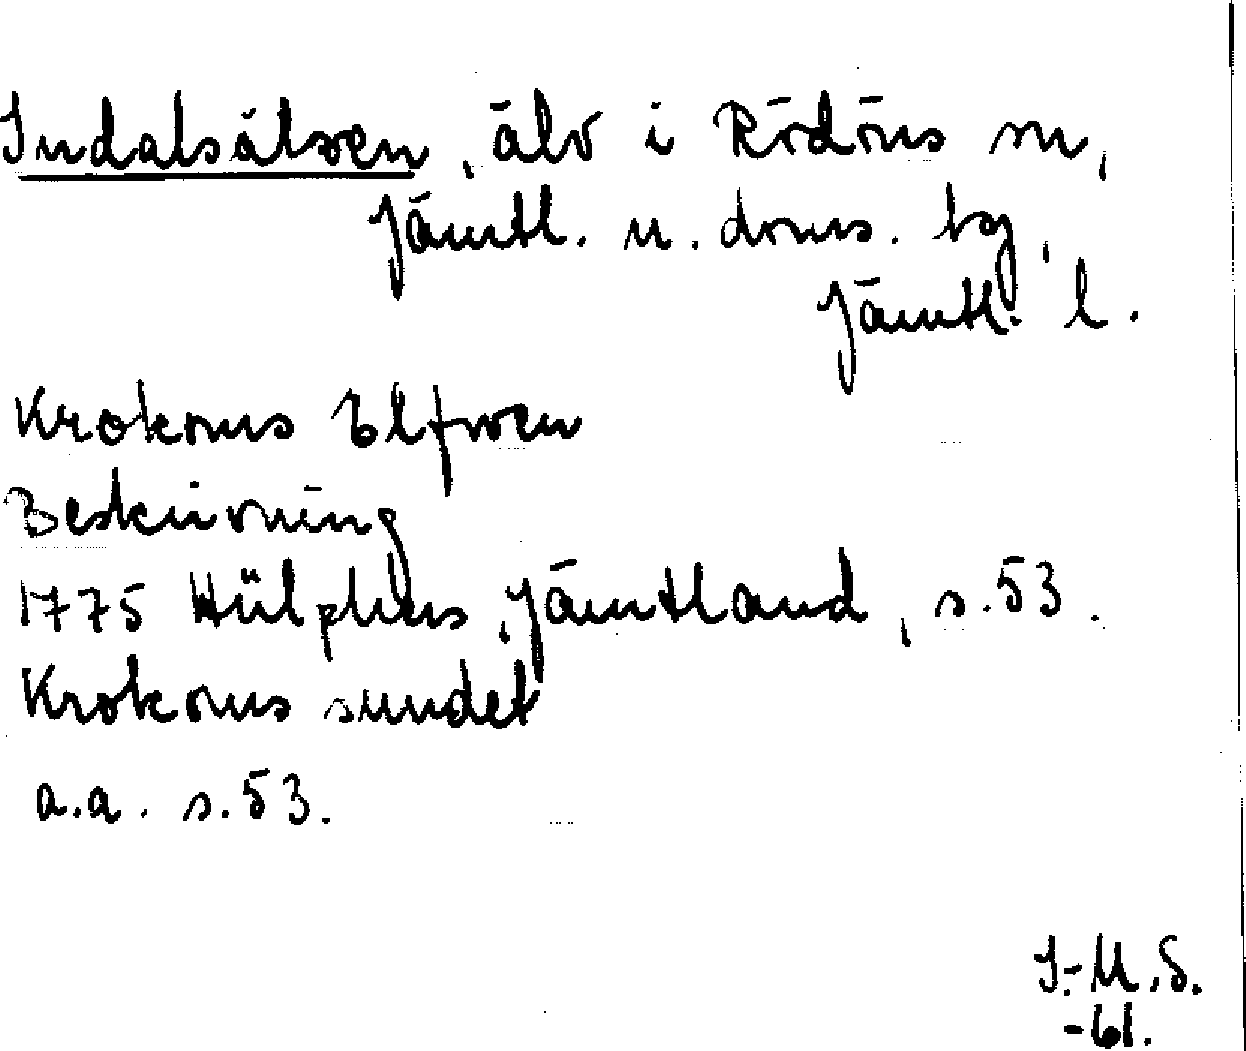 Indalsälven, älv i Rödöns sn,
Jämtl. n. doms. tg,
Jämtl. l.
Krokoms Elfwen
Beskrivning
1775 Hülphers, Jämtland, s. 53.
Krokoms sundet
a.a. s. 53.
I.-M.S.
-61.